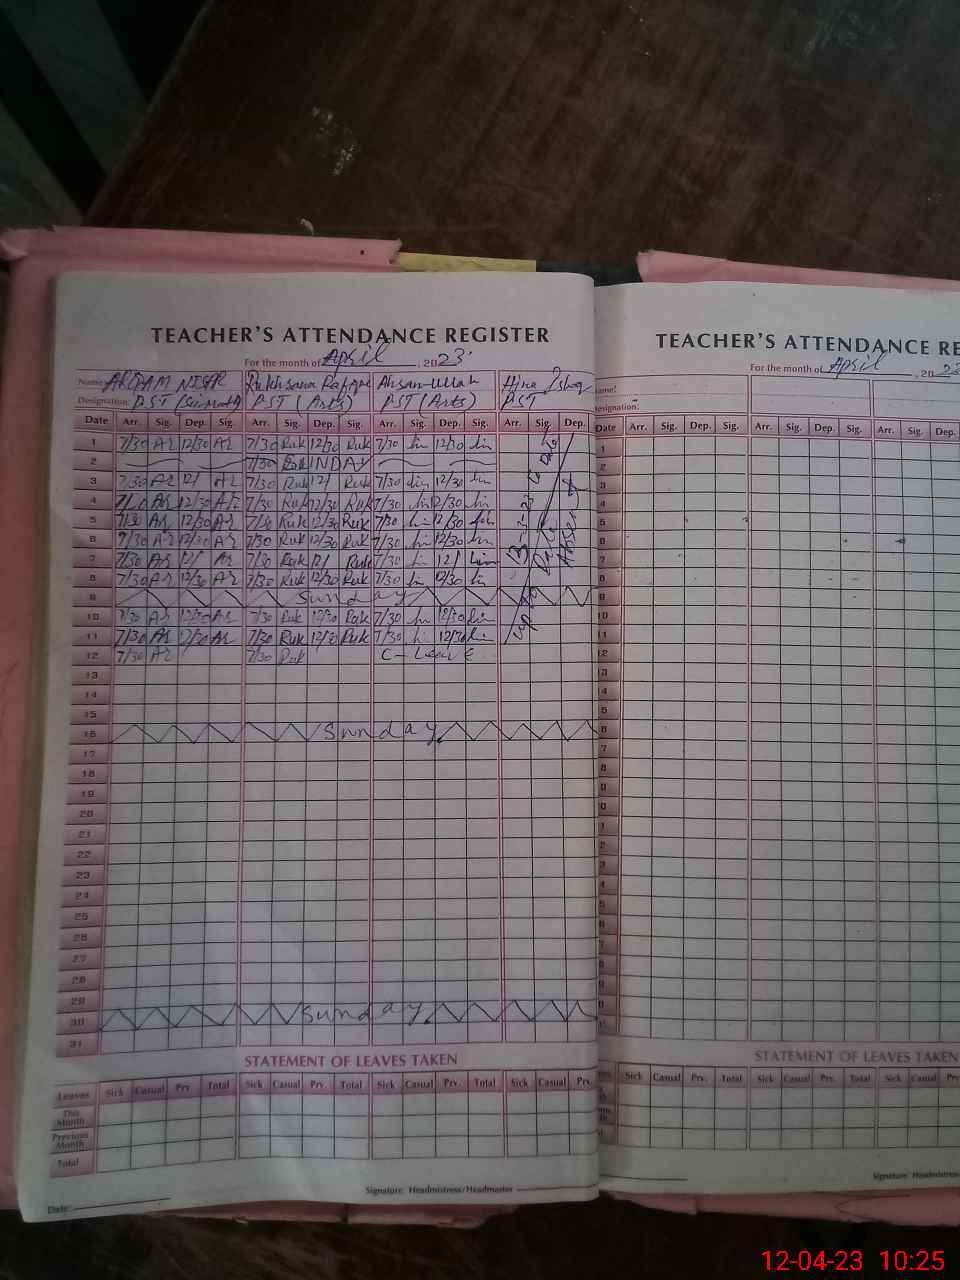 TEACHER'S ATTENDANCE REGISTER
For the month of April , 2023
Name: AKRAM NISAR Rukhsana Ahsan-ullah Hina Ishaq
Designation: PST PST (Arts) PST (Arts) PST
Date Arr. Sig. Dep. Sig. Arr. Sig. Dep. Sig. Arr. Sig. Dep. Sig. Arr. Sig. Dep.
1 7/30 Ar 12/30 Ar 7/30 Ruk 12/30 Ruk 7/30 12/30
2 7/30
3 7/30 Ar 12/ Ar 7/30 Ruk 12/ Ruk 7/30 12/30
4 Ar 12/30 7/30 Ruk 12/30 Ruk 7/30 12/30
5 7/30 Ar 12/30 Ar 7/30 Ruk 12/30 Ruk 7/30 12/30
6 7/30 Ar 12/30 Ar 7/30 Ruk 12/30 Ruk 7/30 12/30
7 7/30 Ar 12/ Ar 7/30 Ruk 12/ Ruk 7/30 12/
8 7/30 Ar 12/30 Ar 7/30 Ruk 12/30 Ruk 7/30 12/30
9 Sunday
10 7/30 Ar 12/30 Ar 7/30 Ruk 12/30 Ruk 7/30 12/30
11 7/30 Ar 12/30 Ar 7/30 Ruk 12/30 Ruk 7/30 12/30
12 7/30 Ar 7/30 Ruk C-Leave
up to Date
Absent
13
14
15
16 Sunday
17
18
19
20
21
22
23
24
25
26
27
28
29
30 Sunday
31
STATEMENT OF LEAVES TAKEN
Leaves Sick Casual Prv. Total Sick Casual Prv. Total Sick Casual Prv. Total Sick Casual Prv.
This Month
Previous Month
Total
Signature: Headmistress/Headmaster
Date:
TEACHER'S ATTENDANCE RE
For the month of April , 202
ame:
esignation:
Date Arr. Sig. Dep. Sig. Arr. Sig. Dep. Sig. Arr. Sig. Dep.
1
2
3
4
5
6
7
8
9
10
11
12
3
4
5
6
7
8
9
0
1
2
3
4
5
6
7
8
STATEMENT OF LEAVES TAKEN
Sick Casual Prv. Total Sick Casual Prv. Total Sick Casual Prv.
Signature: Headmistress/Headmaster
12-04-23 10:25